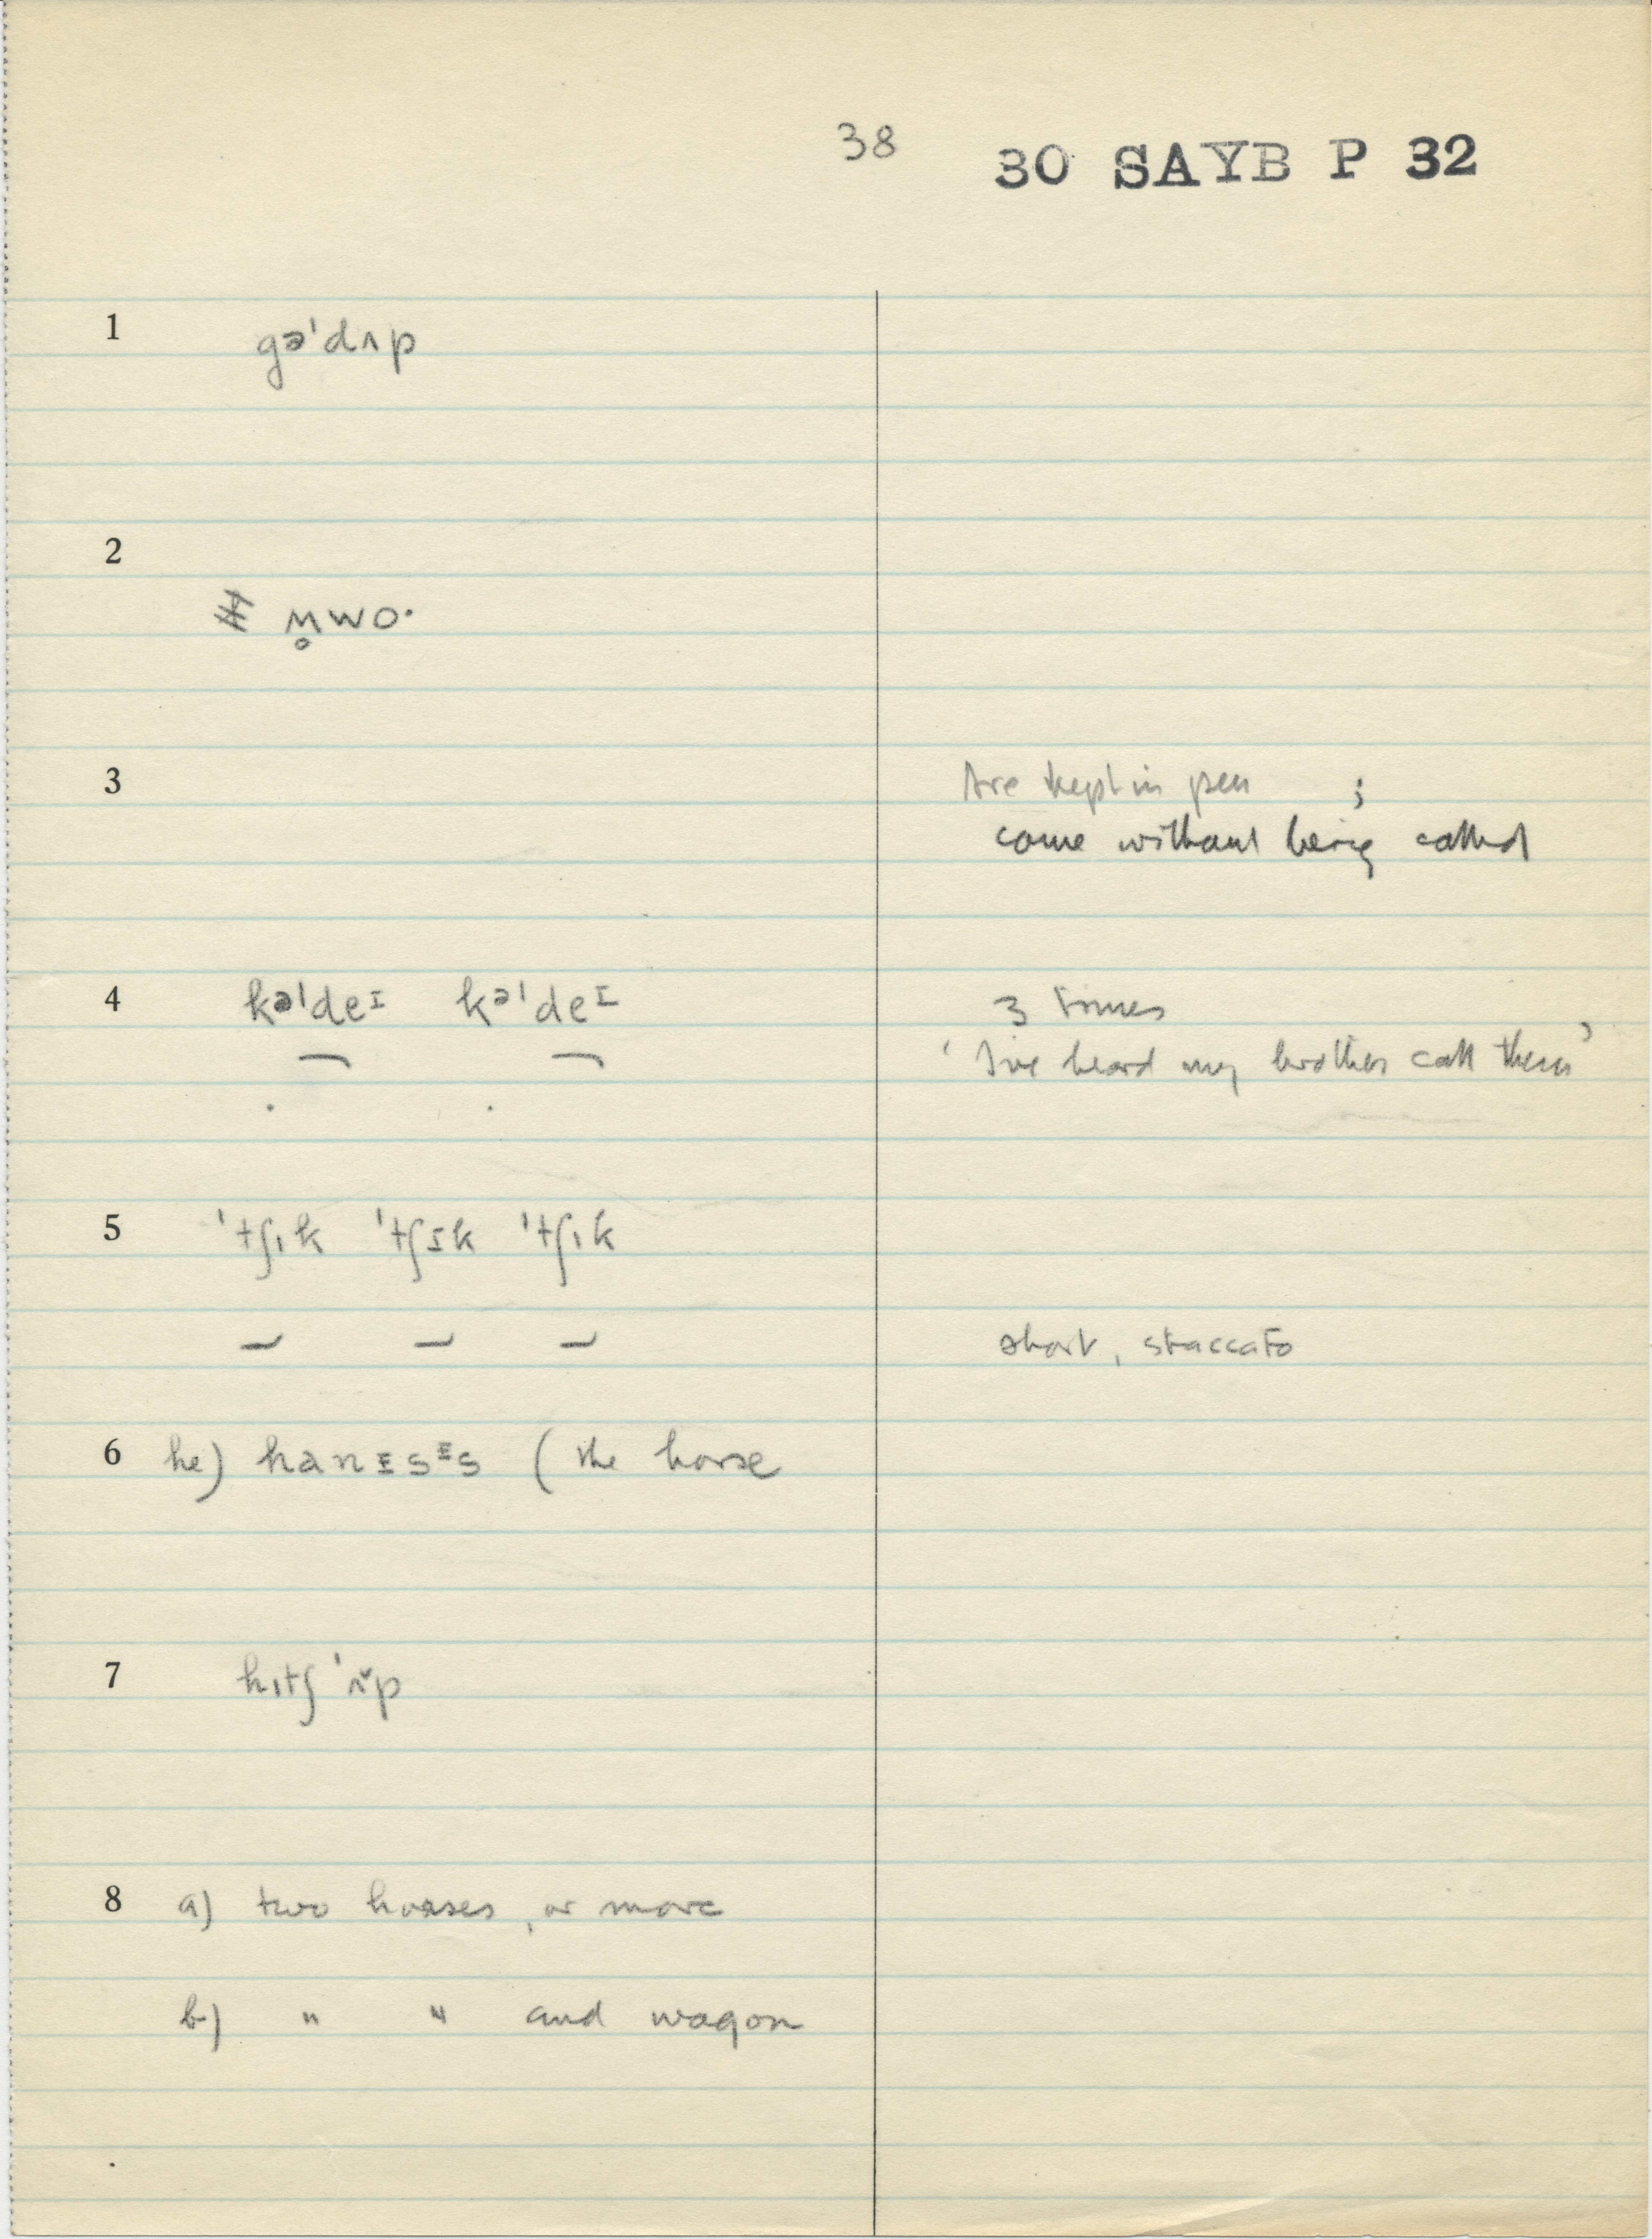 38 30 SAYB P 32
1 gə'dʌp
2 m̥wo·
3 Are kept in pen ;
come without being called
4 kə'deɪ kə'deɪ 3 times
'I've heard my brother call them'
5 'tʃɪk 'tʃɪk 'tʃɪk
short, staccato
6 he) hanɪsᵻs (the horse
7 hɪtʃ 'ʌ̌p
8 a) two horses, or more
b) " " and wagon